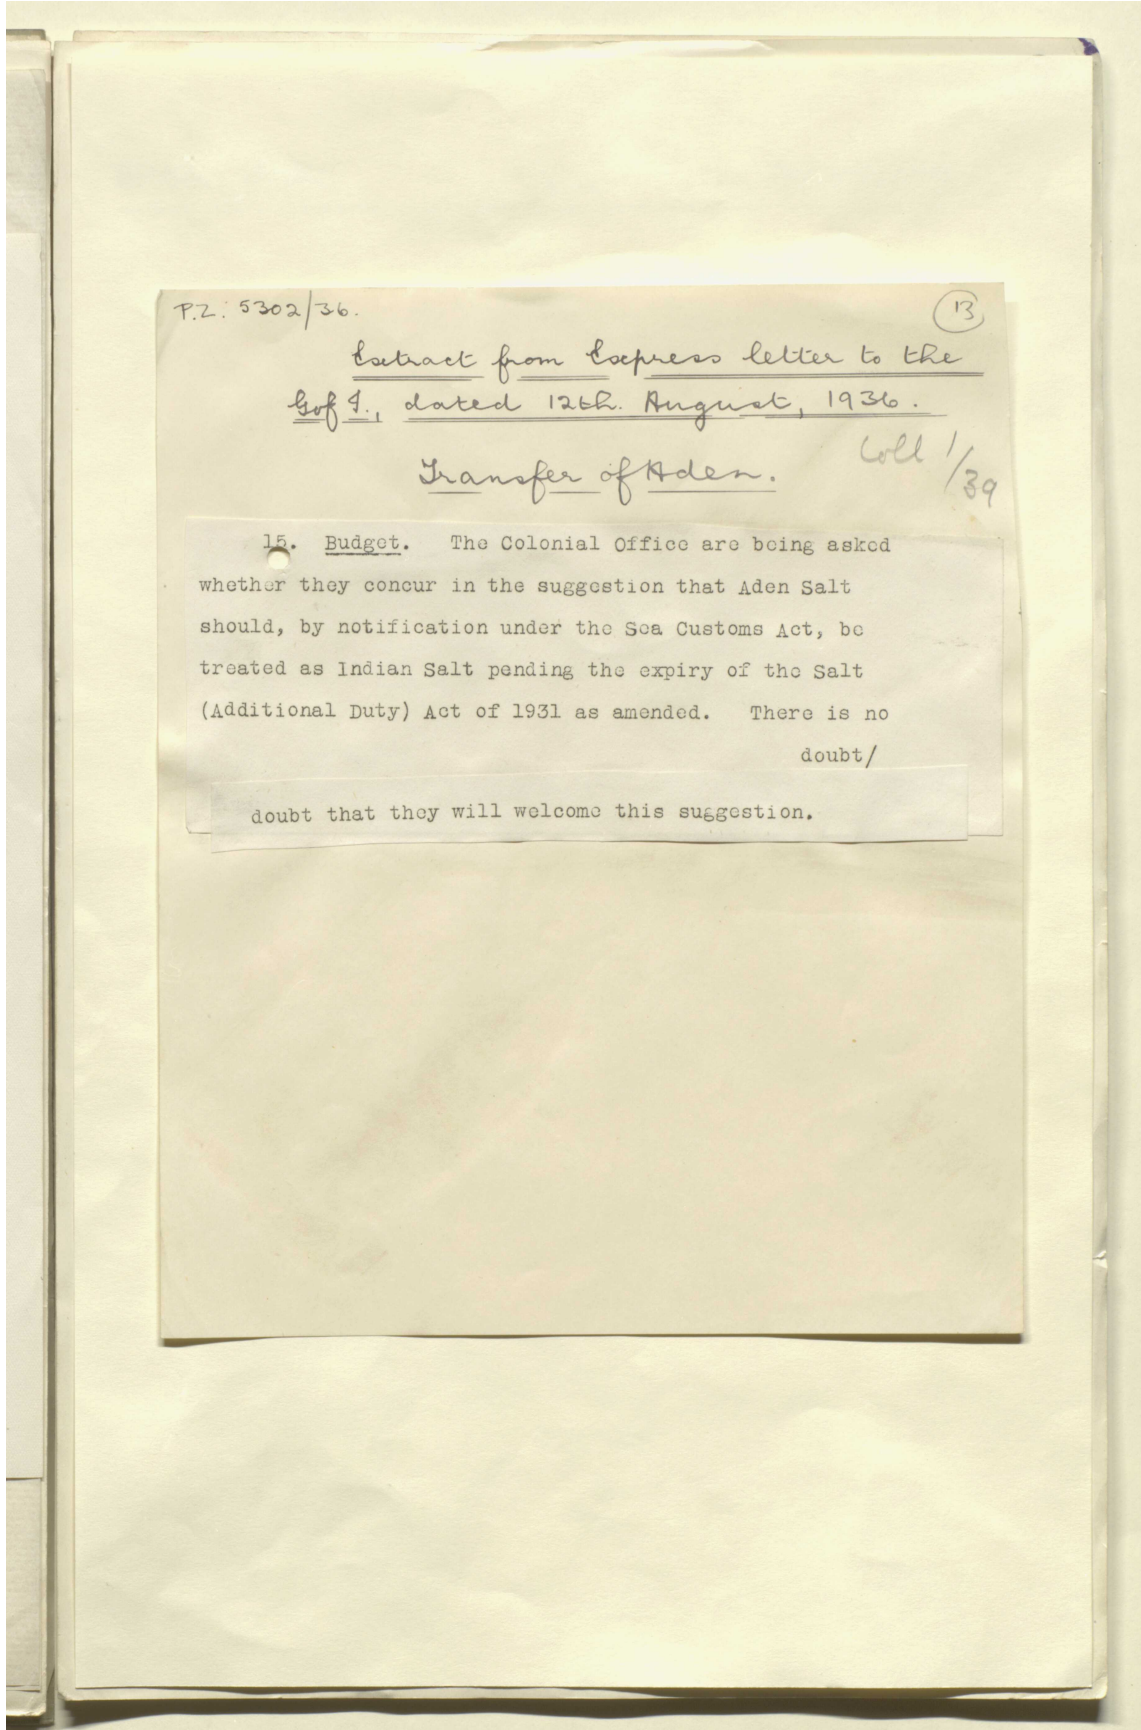 P.Z. 5302/36.
13
Extract from Express letter to the
G of I., dated 12th. August, 1936.
Coll 1/39
Transfer of Aden.
15. Budget. The Colonial Office are being asked
whether they concur in the suggestion that Aden Salt
should, by notification under the Sea Customs Act, be
treated as Indian Salt pending the expiry of the Salt
(Additional Duty) Act of 1931 as amended. There is no
doubt/
doubt that they will welcome this suggestion.